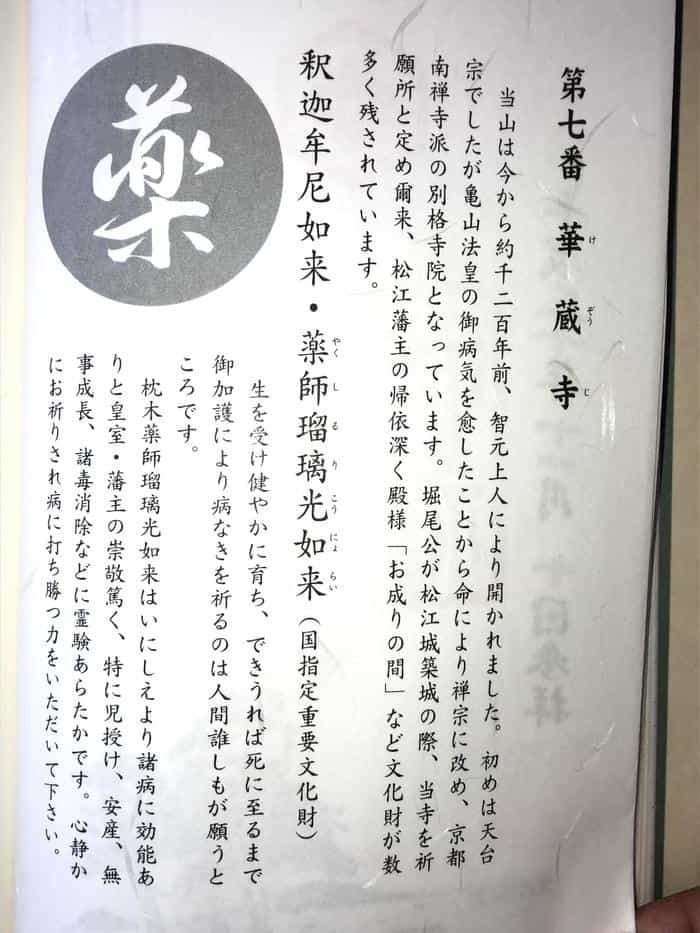 第七番 華蔵寺
けぞうじ
当山は今から約千二百年前、智元上人により開かれました。初めは天台
宗でしたが亀山法皇の御病気を愈したことから命により禅宗に改め、京都
南禅寺派の別格寺院となっています。堀尾公が松江城築城の際、当寺を祈
願所と定め爾来、松江藩主の帰依深く殿様「お成りの間」など文化財が数
多く残されています。
釈迦牟尼如来・薬師瑠璃光如来(国指定重要文化財)
やくしるりこうにょらい
生を受け健やかに育ち、できうれば死に至るまで
御加護により病なきを祈るのは人間誰しもが願うと
ころです。
枕木薬師瑠璃光如来はいにしえより諸病に効能あ
りと皇室・藩主の崇敬篤く、特に児授け、安産、無
事成長、諸毒消除などに霊験あらたかです。心静か
にお祈りされ病に打ち勝つ力をいただいて下さい。
薬